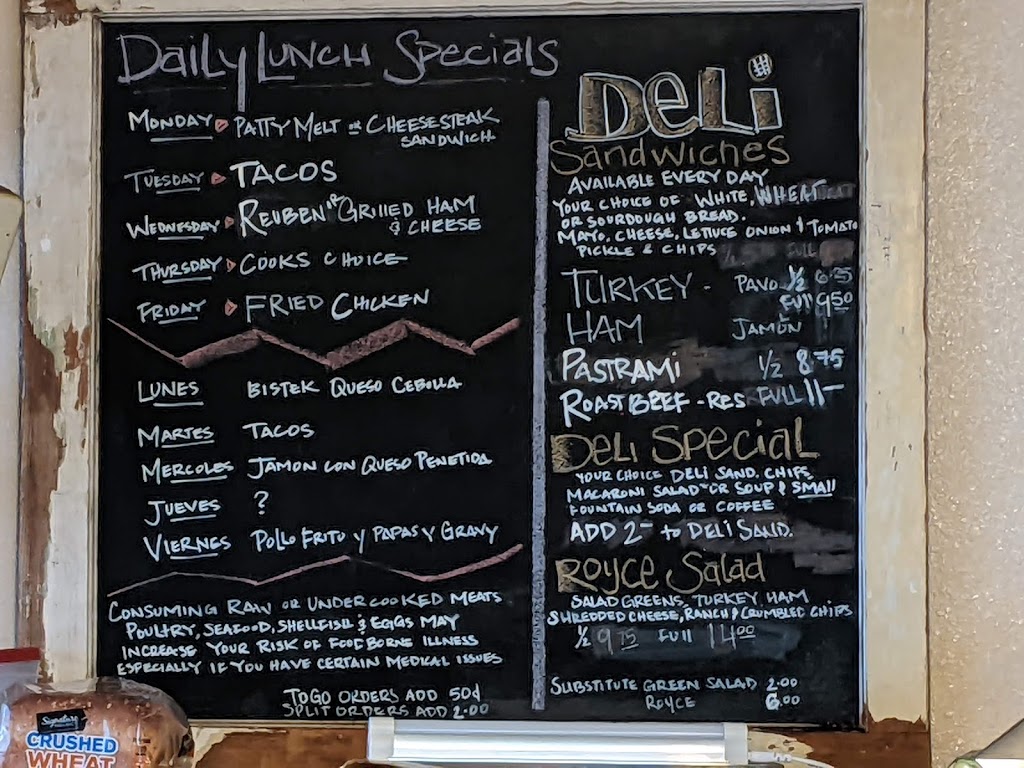 Daily Lunch Specials
Monday Patty Melt or Cheesesteak
Sandwich
Tuesday Tacos
Wednesday Reuben or Grilled Ham
& Cheese
Thursday Cooks Choice
Friday Fried Chicken
Lunes Bistek Queso Cebolla
Martes Tacos
Mercoles Jamon con Queso Penetida
Jueves ?
Viernes Pollo Frito y Papas y Gravy
Consuming raw or undercooked meats
poultry, seafood, shellfish & eggs may
increase your risk of foodborne illness
especially if you have certain medical issues
ToGo orders add 50¢
Split orders add 2.00
Deli
Sandwiches
Available every day
Your choice of white, wheat
or sourdough bread.
Mayo, cheese, letuce onion & tomato
pickle & chips
Turkey - Pavo 1/2 6.25
Full 9.50
Ham Jamón
Pastrami 1/2 8.75
Roast Beef - Res Full 11-
Deli Special
Your choice deli sand. chips
macaroni salad or soup & small
fountain soda or coffee
Add 2- to deli sand.
Royce Salad
Salad greens, turkey, ham
shredded cheese, ranch & crumbled chips
1/2 9.75 Full 14.00
Substitute green salad 2.00
Royce 6.00
Signature
CRUSHED
WHEAT